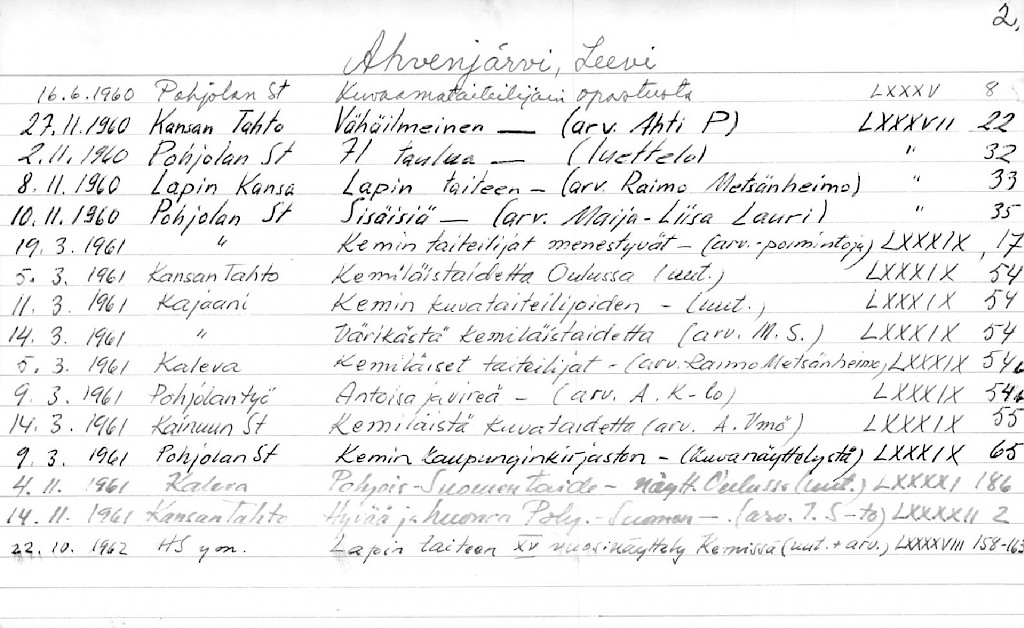 2.
Ahvenjärvi, Leevi
16.6.1960 Pohjolan St Kuvaamataiteilijain opastusta LXXXV 8
27.11.1960 Kansan Tahto Vähäilmeinen — (arv. Ahti P) LXXXVII 22
2.11.1960 Pohjolan St 71 taulua — (luettelo) " 32
8.11.1960 Lapin Kansa Lapin taiteen – (arv. Raimo Metsänheimo) " 33
10.11.1960 Pohjolan St Sisäisiä — (arv. Maija-Liisa Lauri) " 35
19. 3. 1961 " Kemin taiteilijat menestyvät – (arv.-poimintoja) LXXXIX, 17
5. 3. 1961 Kansan Tahto Kemiläistaidetta Oulussa (uut.) LXXXIX 54
11. 3. 1961 Kajaani Kemin kuvataiteilijoiden – (uut.) LXXXIX 54
14. 3. 1961 " Värikästä kemiläistaidetta (arv. M. S.) LXXXIX 54
5. 3. 1961 Kaleva Kemiläiset taiteilijat – (arv. Raimo Metsänheimo) LXXXIX 54
9. 3. 1961 Pohjolan työ Antoisa ja vireä – (arv. A. K-lo) LXXXIX 54
14. 3. 1961 Kainuun St Kemiläistä kuvataidetta (arv. A. Vmö) LXXXIX 55
9. 3. 1961 Pohjolan St Kemin kaupunginkirjaston – (kuvanäyttelystä) LXXXIX 65
4. 11. 1961 Kaleva Pohjois-Suomen taide – näytt. Oulussa (uut.) LXXXXI 186
14. 11. 1961 Kansan Tahto Hyvää ja huonoa Pohj.-Suomen — (arv. T. S-to) LXXXXII 2
22. 10. 1962 HS ym. Lapin taiteen XV vuosinäyttely Kemissä (uut. + arv.) LXXXXVIII 158-163